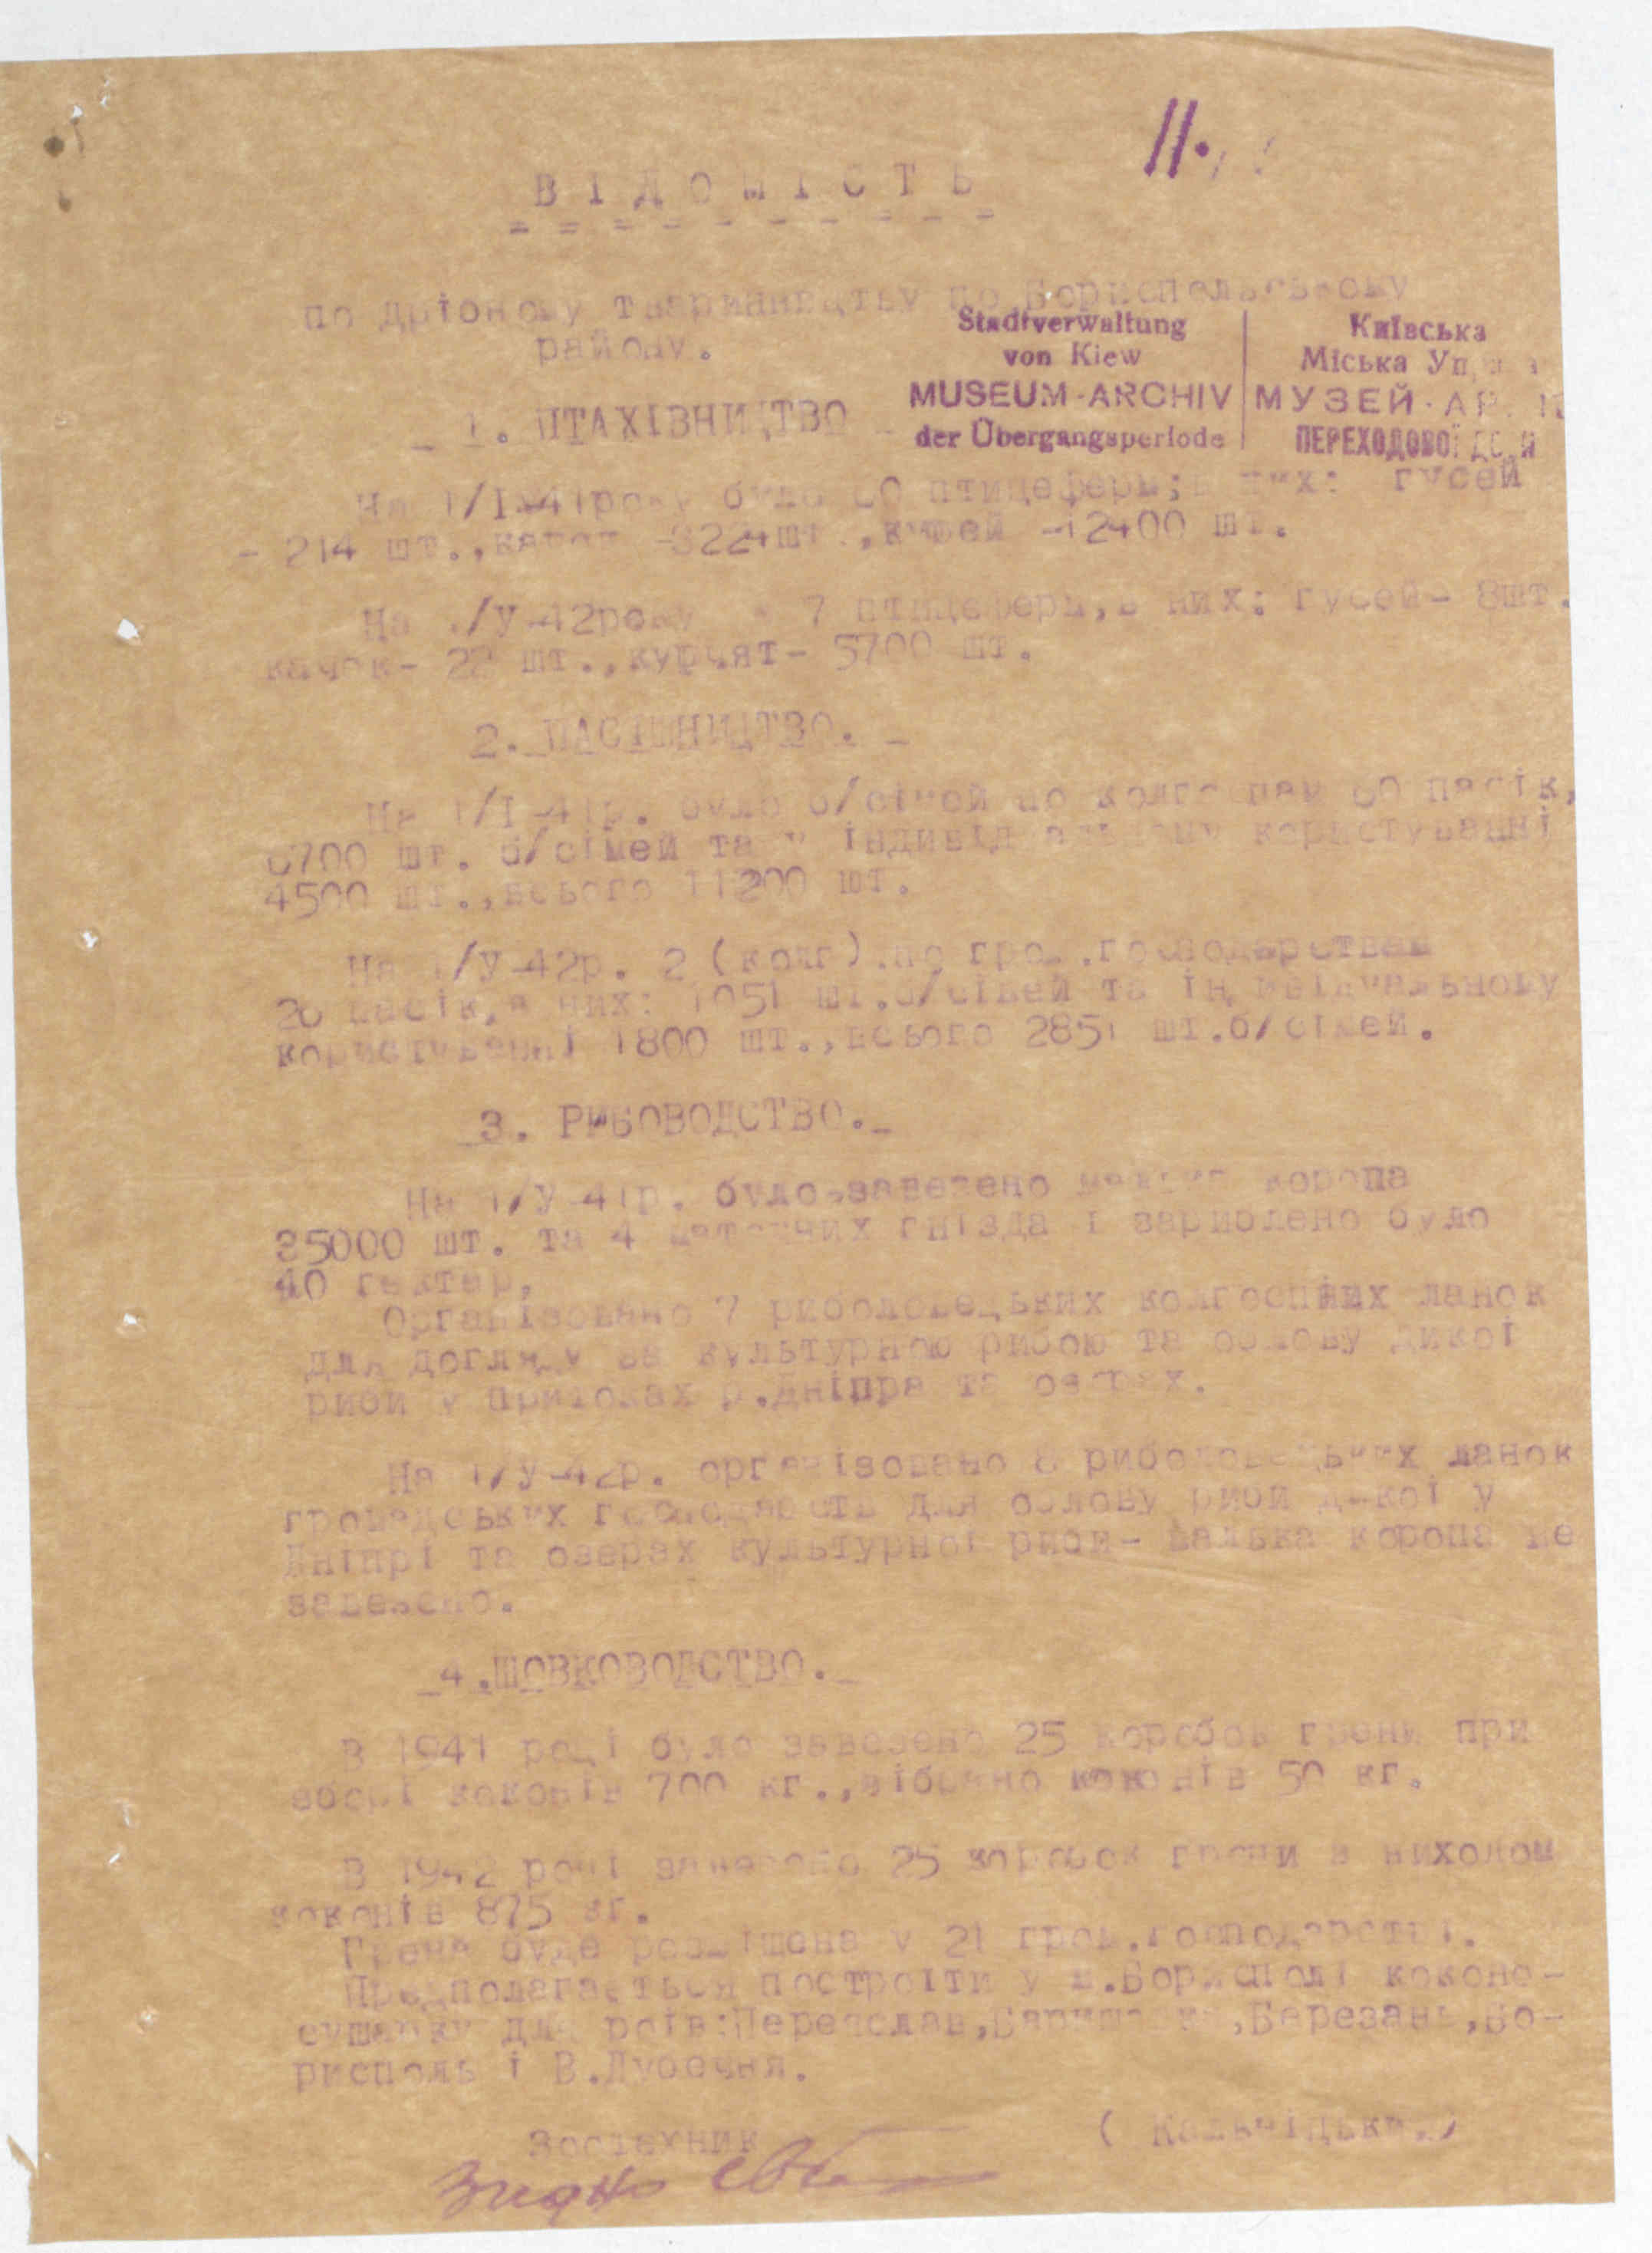 11.
ВІДОМІСТЬ
по дріб­ному тваринництву по Бориспольському
району.
Stadtverwaltung
von Kiew
MUSEUM-ARCHIV
der Übergangsperiode
Київська
Міська
МУЗЕЙ-
ПЕРЕХОДОВОЇ
1. ПТАХІВНИЦТВО
На 1/І-41року було птицеферм; в них: гусей
- 214 шт., качок -3224шт., курей -12400 шт.
На /У-42року - 7 птицеферм, в них: гусей- 8шт.
качок- 22 шт., курчят- 5700 шт.
2. ПАСІШНИЦТВО.
На 1/І-41р. було б/сімей по колгоспам пасік,
6700 шт. б/сімей та у індивідуальному користуванні
4500 шт., всього 11200 шт.
На 1/У-42р. 2 (колг).по гром.господарствам
20 пасік, в них: 1051 шт.б/сімей та індивідуальному
користуванні 1800 шт., всього 2851 шт.б/сімей.
3. РИБОВОДСТВО.
На 1/У-41р. було завезено малька коропа
35000 шт. та 4 маточних гнізда і зариблено було
40 гектар.
Організовано 7 риболовецьких колгоспних ланок
для догляду за культурною рибою та облову дикої
риби у притоках р.Дніпра та озерах.
На 1/У-42р. організовано 8 риболовецьких ланок
громадських господарств для облову риби дикої у
Дніпрі та озерах культурної риби- малька коропа не
завезено.
4.ШОВКОВОДСТВО.
В 1941 році було завезено 25 коробок грени при
зборі коконів 700 кг., зібрано коконів 50 кг.
В 1942 році завезено 25 коробок грени з виходом
коконів 875 кг.
Грена буде розміщена у 21 гром.господарстві.
Предполагається построїти у м.Борисполі коконо-
сушарку для роїв:Переяслав,Баришевка,Березань,Бо-
рисполь і В.Дубечня.
Зоотехник